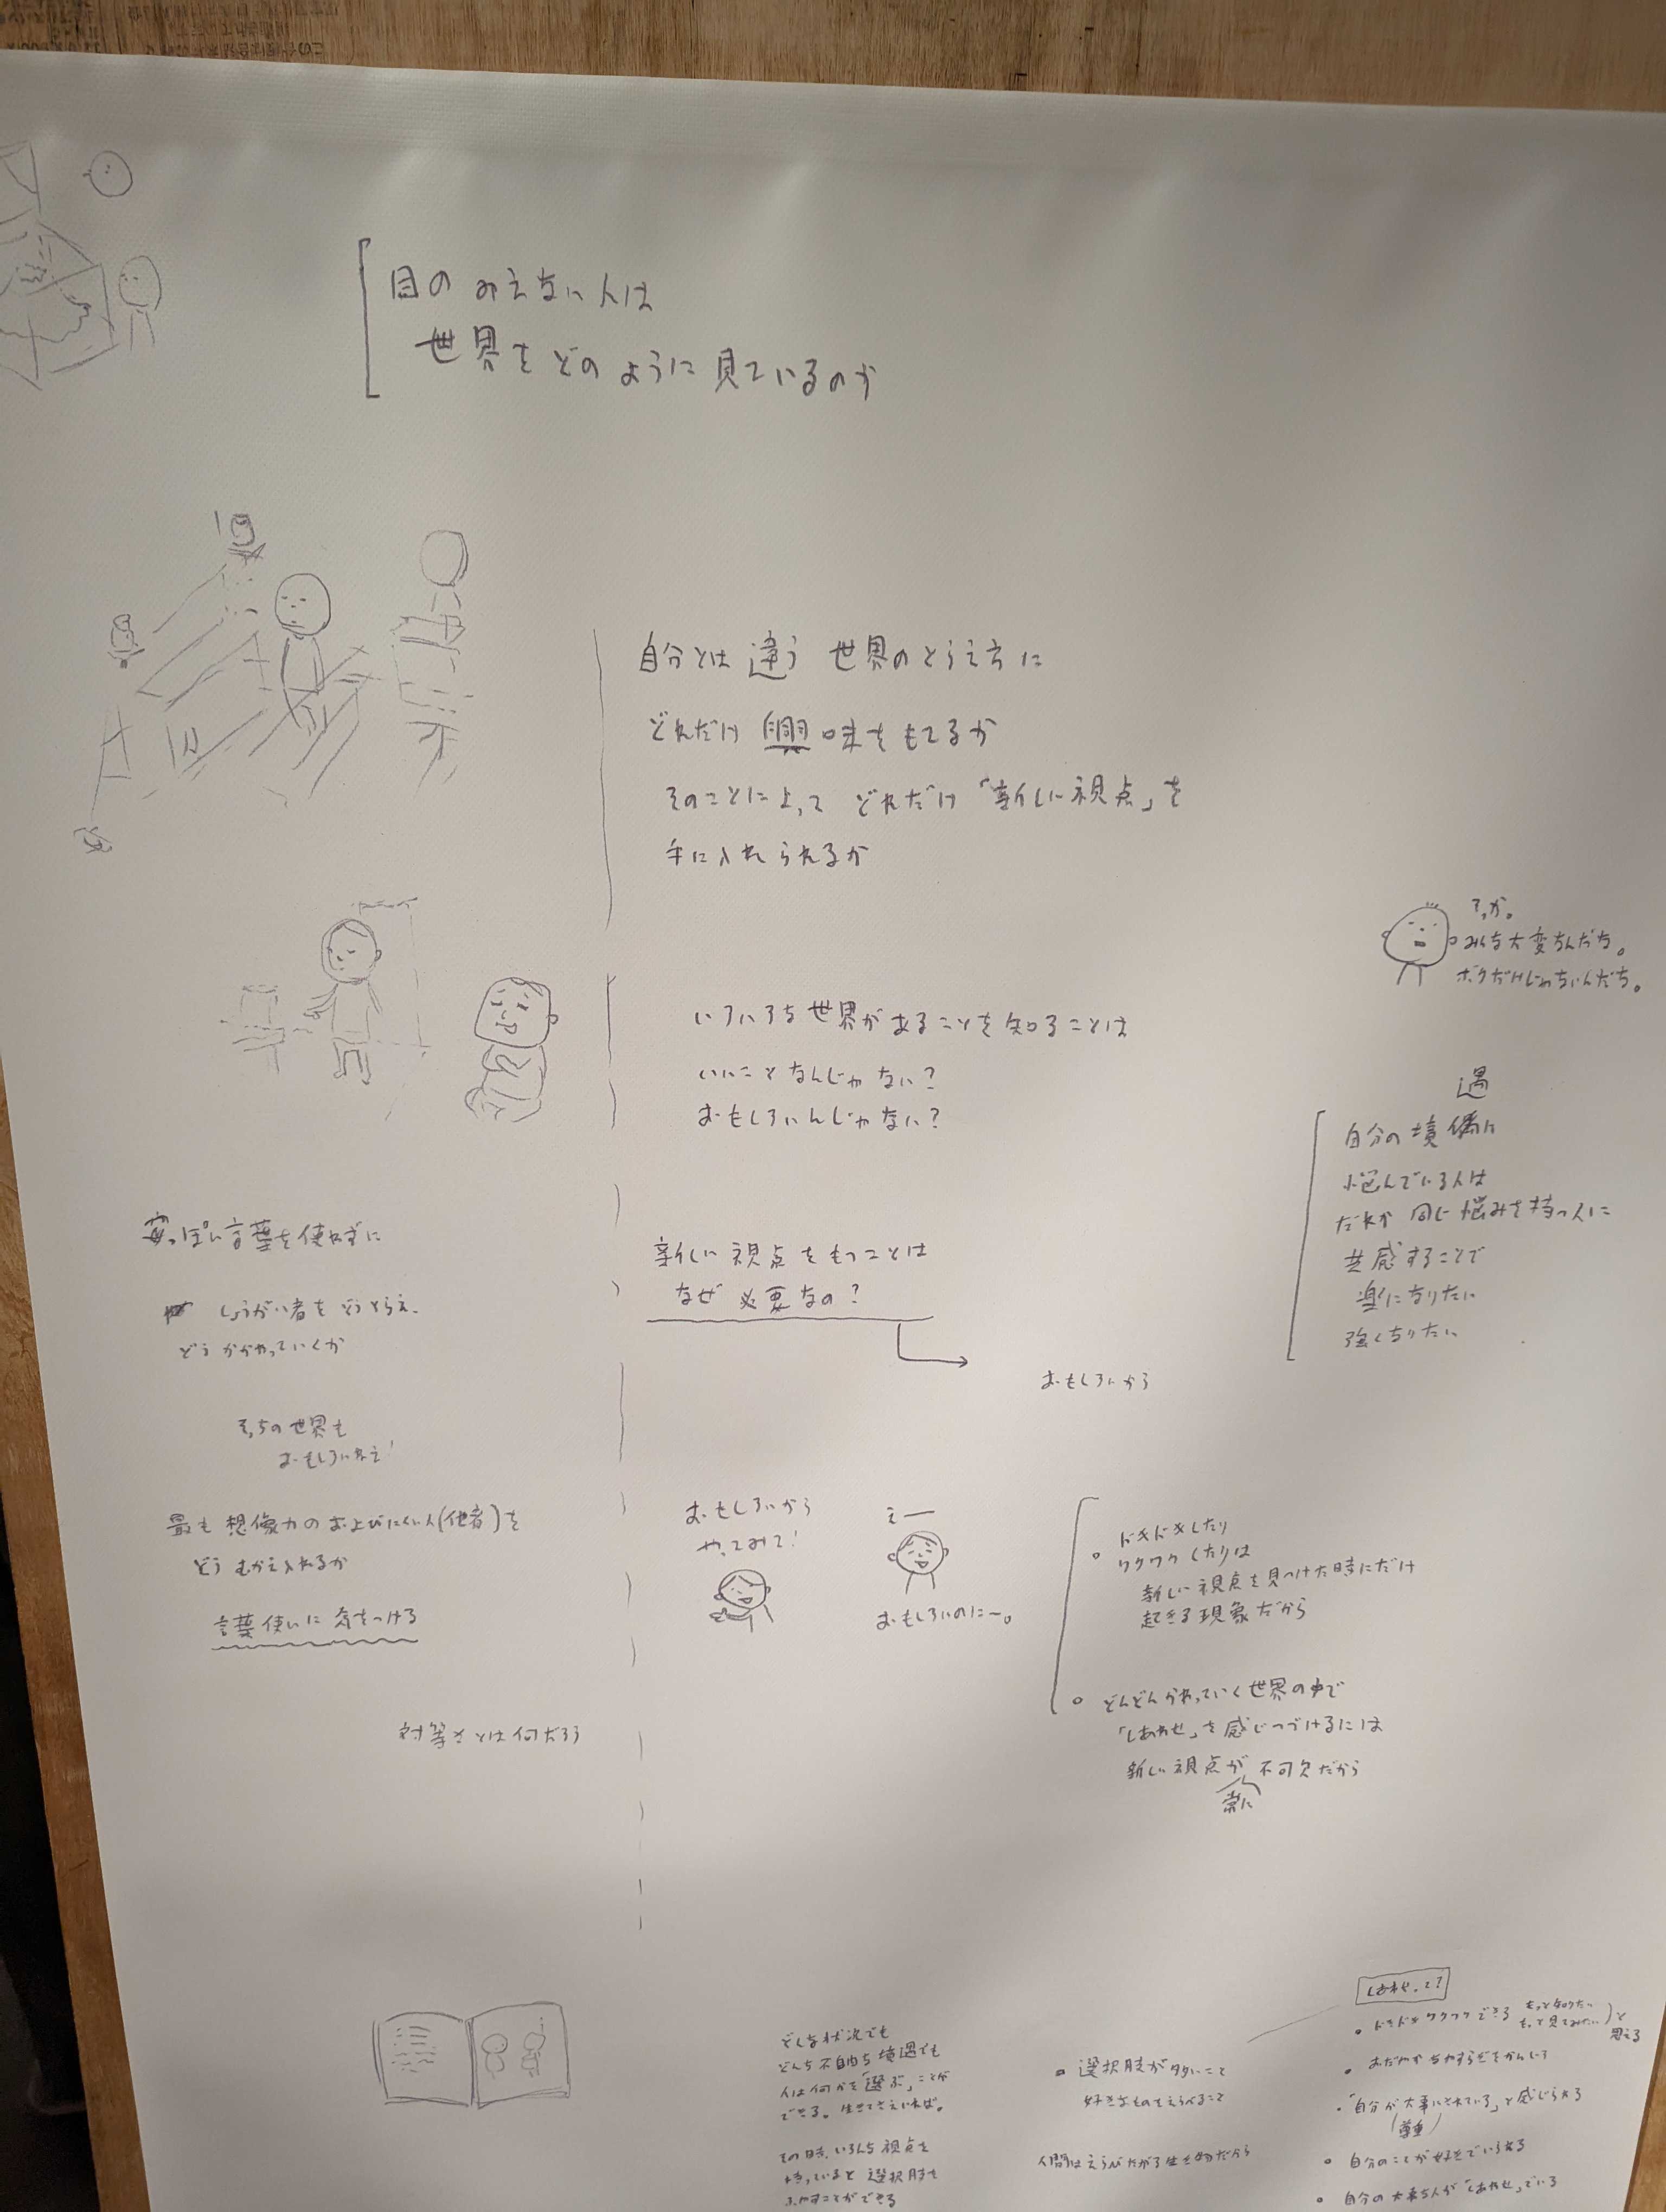 目のみえない人は
世界をどのように見ているのか
自分とは違う 世界のとらえ方に
どれだけ興味をもてるか
そのことによって どれだけ「新しい視点」を
手に入れられるか
そっか。
みんな大変なんだな。
ボクだけじゃないんだな。
いろいろな世界があることを知ることは
いいことなんじゃない?
おもしろいんじゃない?
遇
自分の境偶に
悩んでいる人は
だれか同じ悩みを持つ人に
共感することで
楽になりたい
強くなりたい
安っぽい言葉を使わずに
しょうがい者をどうとらえ、
どうかかわっていくか
そっちの世界も
おもしろいねえ!
最も想像力のおよびにくい人(他者)を
どうむかえ入れるか
言葉使いに気をつける
対等さとは何だろう
新しい視点をもつことは
なぜ必要なの?
おもしろいから
おもしろいから
やってみて!
えー
おもしろいのにー。
ドキドキしたり
ワクワクしたりは
新しい視点を見つけた時にだけ
起きる現象だから
どんどんかわっていく世界の中で
「しあわせ」を感じつづけるには
新しい視点が不可欠だから
常に
どんな状況でも
どんな不自由な境遇でも
人は何かを「選ぶ」ことが
できる。生きてさえいれば。
その時、いろんな視点を
持っていると選択肢を
ふやすことができる
選択肢が多いこと
好きなものをえらべること
人間はえらびたがる生き物だから
しあわせって?
ドキドキワクワクできる もっと知りたい
もっと見てみたい…)と
思える
おだやかなやすらぎをかんじる
「自分が大事にされている」と感じられる
(尊重)
自分のことが好きでいられる
自分の大事な人が「しあわせ」でいる